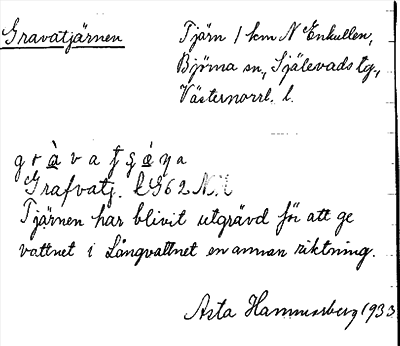 Gravatjärnen
Tjärn 1 km N Enkullen,
Björna sn, Själevads tg.,
Västernorrl. l.
Grafvatj.
Tjärnen har blivit utgrävd för att ge
vattnet i Långvattnet en annan riktning.
Asta Hammarberg 1933